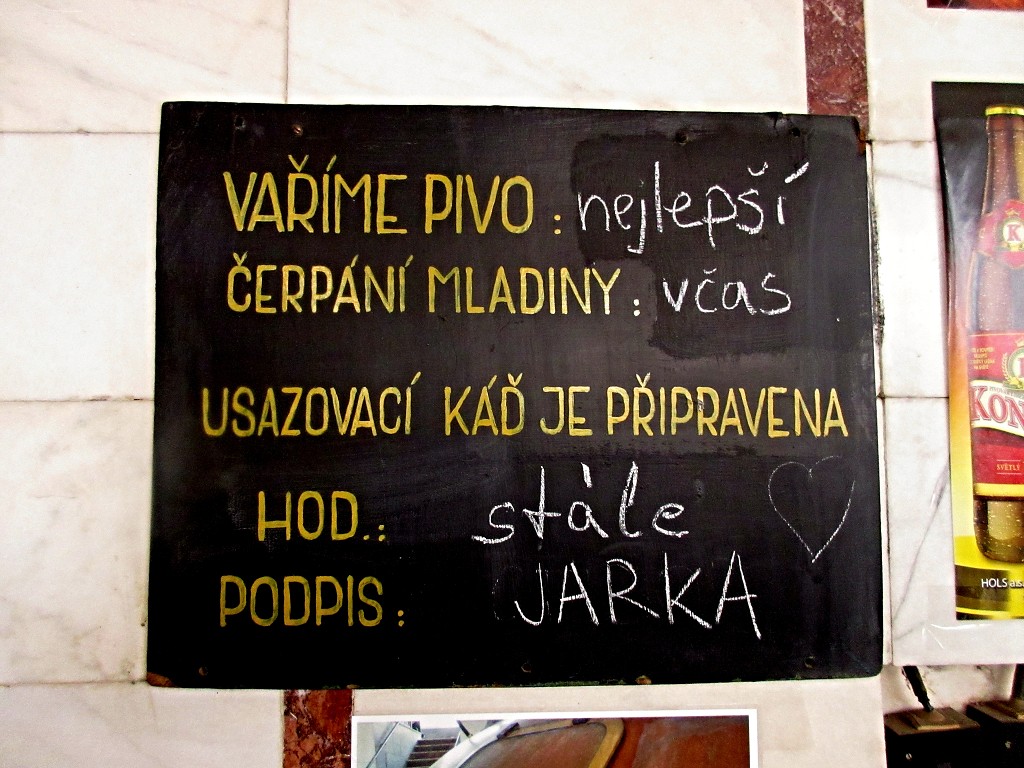 VAŘÍME PIVO : nejlepší
ČERPÁNÍ MLADINY : včas
USAZOVACÍ KÁĎ JE PŘIPRAVENA
HOD.: stále
PODPIS: JARKA
KON
SVĚTLÝ
HOLS a.s.